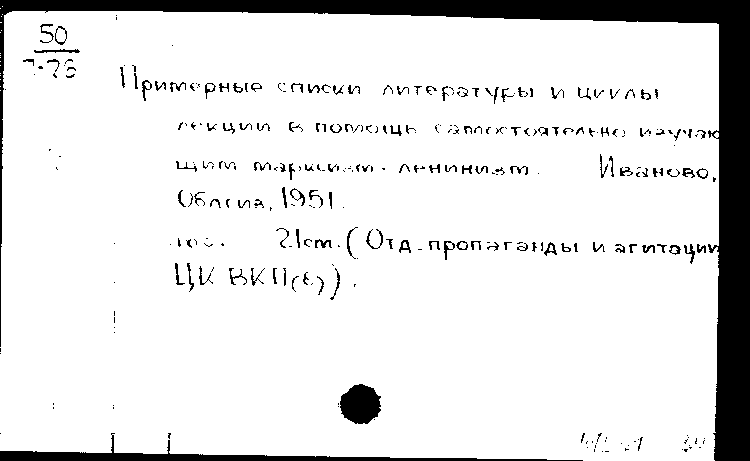 50
Примерные списки литературы и циклы
лекций в помощь самостоятельно изучаю
щим марксизм-ленинизм. Иваново,
Облгиз, 1951.
21cm. (Отд. пропаганды и агитации
ЦК ВКП(б)).